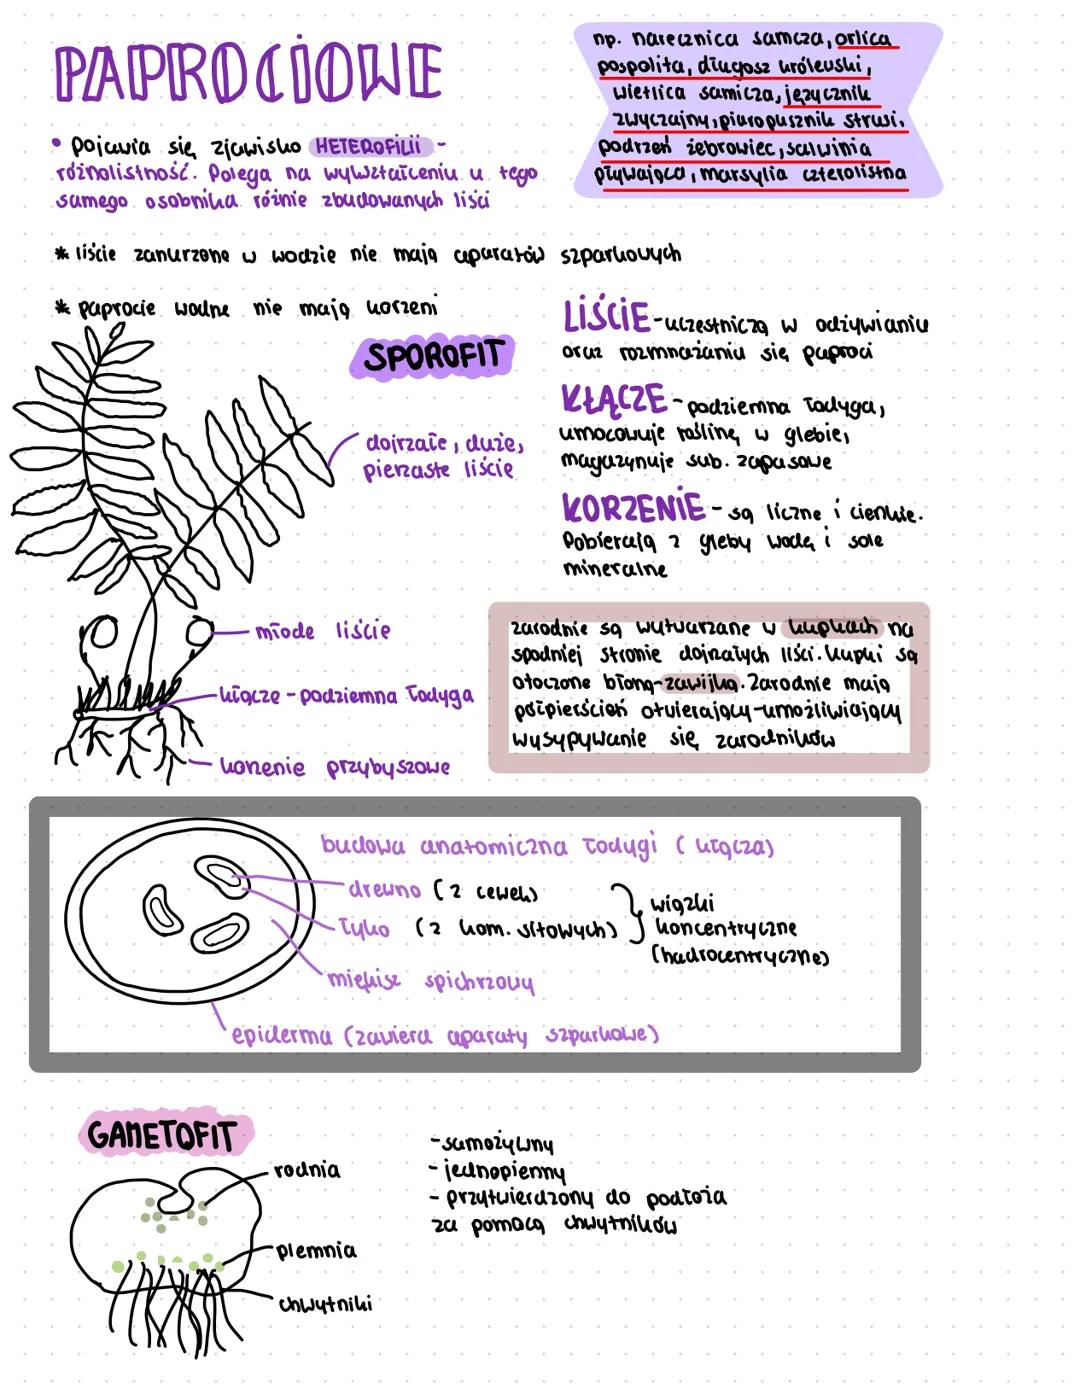 PAPROCIOWE
np. narecznica samcza, orlica
pospolita, długosz królewski,
wietlica samicza, języcznik
zwyczajny, pióropusznik strusi,
podrzeń żebrowiec, salwinia
pływająca, marsylia czterolistna
• Pojawia się zjawisko HETEROFILII -
różnolistność. Polega na wykształceniu u tego
samego osobnika różnie zbudowanych liści
* liście zanurzone w wodzie nie mają aparatów szparkowych
* paprocie wodne nie mają korzeni
SPOROFIT
dojrzałe, duże,
pierzaste liście
młode liście
kłącze - podziemna łodyga
korzenie przybyszowe
LIŚCIE - uczestniczą w odżywianiu
oraz rozmnażaniu się paproci
KŁĄCZE - podziemna łodyga,
umocowuje roślinę w glebie,
magazynuje sub. zapasowe
KORZENIE - są liczne i cienkie.
Pobierają z gleby wodę i sole
mineralne
zarodnie są wytwarzane w kupkach na
spodniej stronie dojrzałych liści. Kupki są
otoczone błoną - zawijką. Zarodnie mają
półpierścień otwierający - umożliwiający
wysypywanie się zarodników
budowa anatomiczna łodygi (kłącza)
drewno (z cewek)
łyko (z kom. sitowych)
wiązki
koncentryczne
(hadrocentryczne)
miękisz spichrzowy
epiderma (zawiera aparaty szparkowe)
GAMETOFIT
rodnia
plemnia
chwytniki
- samożywny
- jednopienny
- przytwierdzony do podłoża
za pomocą chwytników